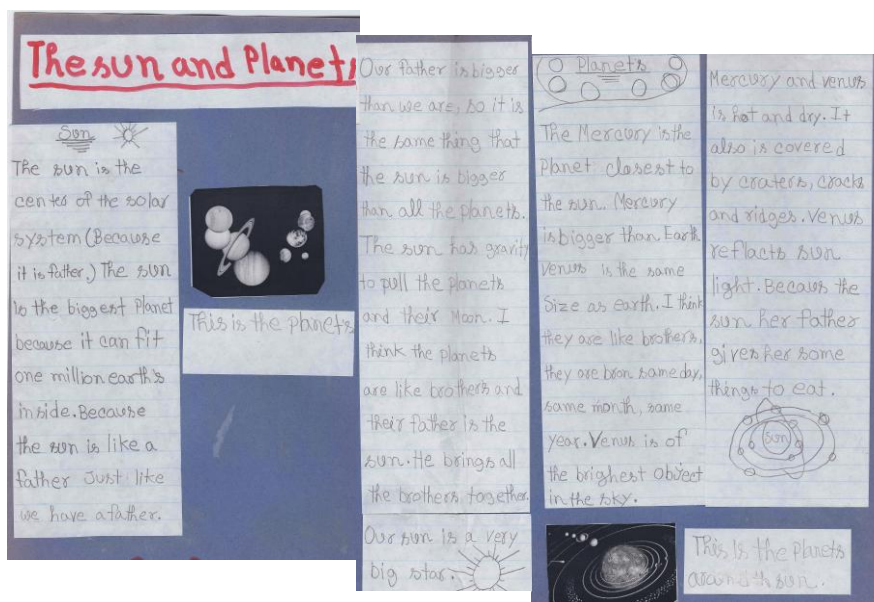 The sun and Planets
Sun
The sun is the
center of the solar
system (Because
it is father.) The sun
is the biggest Planet
because it can fit
one million earth's
inside. Because
the sun is like a
father Just like
we have a father.
This is the planets
Our father is bigger
than we are, so it is
the same thing that
the sun is bigger
than all the planets.
The sun has gravity
to pull the planets
and their Moon. I
think the planets
are like brothers and
their father is the
sun. He brings all
the brothers together.
Our sun is a very
big star.
Planets
The Mercury is the
Planet closest to
the sun. Mercury
is bigger than Earth
Venus is the same
Size as earth. I think
they are like brothers,
they are bron same day,
same month, same
year. Venus is of
the brighest Object
in the sky.
Mercury and venus
is hot and dry. It
also is covered
by craters, cracks
and ridges. Venus
reflacts sun
light. Becaus the
sun her father
gives her some
things to eat.
sun
This Is the Planets
around th sun.